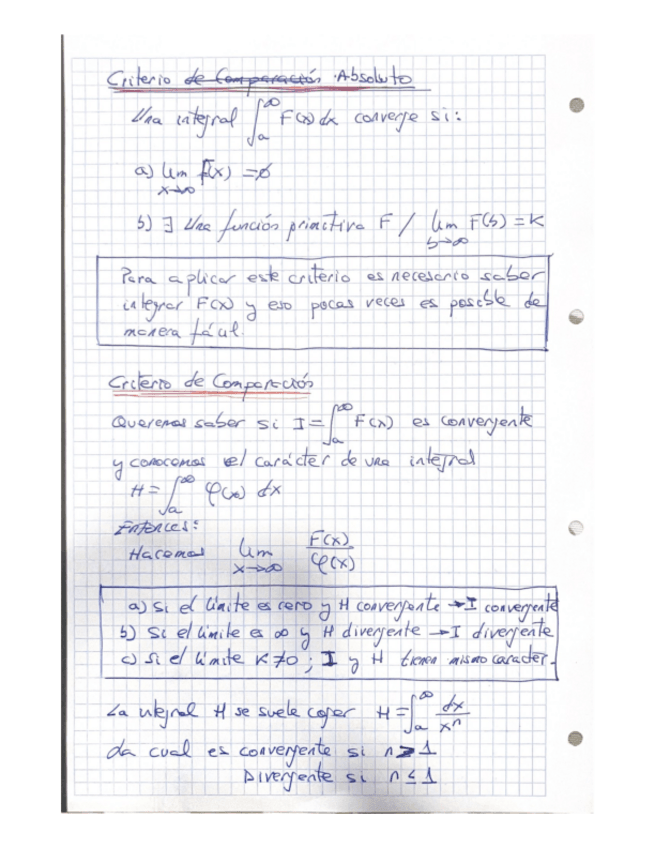 Criterio de Comparación Absoluto
Una integral ∫ₐ^∞ F(x) dx converge si:
a) lim x→∞ F(x) = 0
b) ∃ Una función primitiva F / lim b→∞ F(b) = K
Para aplicar este criterio es necesario saber
integrar F(x) y eso pocas veces es posible de
manera fácil.
Criterio de Comparación
Queremos saber si I = ∫ₐ^∞ F(x) es convergente
y conocemos el carácter de una integral
H = ∫ₐ^∞ φ(x) dx
Entonces:
Hacemos lim x→∞ F(x)/φ(x)
a) Si el límite es cero y H convergente → I convergente
b) Si el límite es ∞ y H divergente → I divergente
c) Si el límite K≠0 ; I y H tienen mismo caracter.
La integral H se suele coger H = ∫ₐ^∞ dx/xⁿ
La cual es convergente si n > 1
Divergente si n ≤ 1